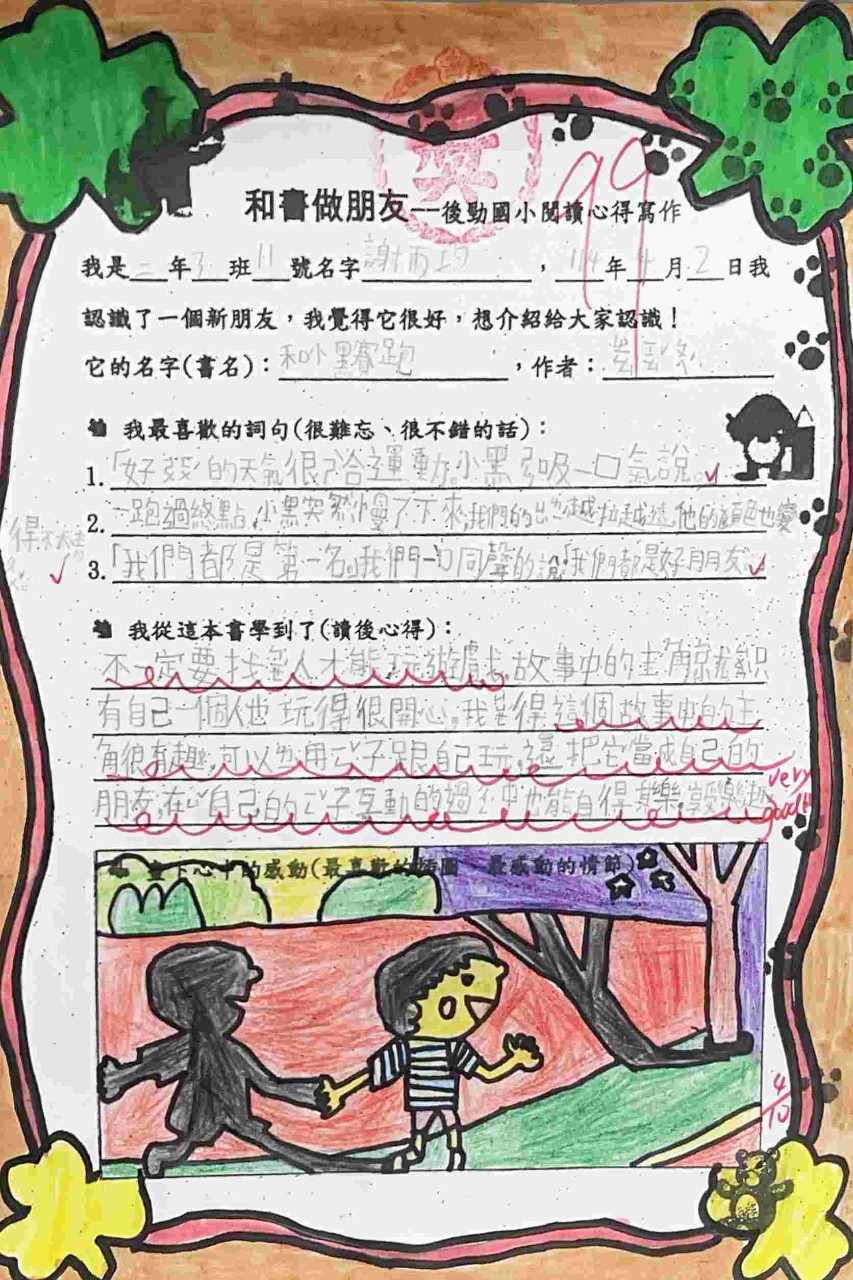 獎
99
和書做朋友--後勁國小閱讀心得寫作
我是二年3班11號名字謝，114年4月2日我
認識了一個新朋友，我覺得它很好，想介紹給大家認識！
它的名字(書名)：和小黑賽跑，作者：
我最喜歡的詞句(很難忘、很不錯的話)：
1.「好的天氣很適合運動。」小黑吸一口氣說。
2.一跑過終點,小黑突然慢了下來,我們的越拉越遠,他的顏色也變
得不太清
3.「我們都是第一名。」我們一口同聲的說「我們都是好朋友。」
我從這本書學到了(讀後心得)：
不一定要找人才能玩遊戲,故事中的主角就
有自己一個人也玩得很開心,我覺得這個故事中的主
角很有趣,可以用影子跟自己玩,還把它當成自己的
朋友,在自己的影子互動的過中也能自得其樂,享受樂趣
very
good
畫下心中的感動(最喜歡的插圖、最感動的情節)
4/10